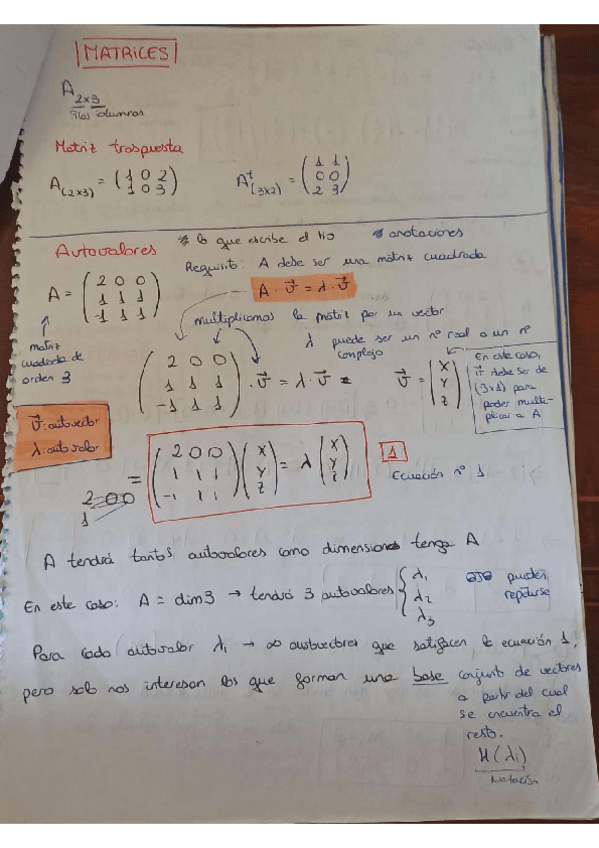 MATRICES
A 2x3
filas columnas
Matriz traspuesta
A(2x3) = (1 0 2
1 0 3)
A^t(3x2) = (1 1
0 0
2 3)
Autovalores * lo que escribe el tio * anotaciones
Requisito: A debe ser una matriz cuadrada
A = (2 0 0
1 1 1
-1 1 1)
A · v⃗ = λ · v⃗
matriz cuadrada de orden 3
multiplicamos la matriz por un vector
λ puede ser un nº real o un nº complejo
(2 0 0
1 1 1
-1 1 1) · v⃗ = λ · v⃗ =
v⃗ = (x
y
z)
En este caso,
v⃗ debe ser de
(3x1) para
poder multi-
plicar a A
v⃗: autovector
λ: autovalor
= (2 0 0
1 1 1
-1 1 1) (x
y
z) = λ (x
y
z)
1
Ecuación nº 1
2 0 0
1
A tendrá tantos autovalores como dimensiones tenga A
En este caso: A = dim 3 → tendrá 3 autovalores { λ1
λ2
λ3
pueden
repetirse
Para cada autovalor λ1 → ∞ autovectores que satisfacen la ecuación 1,
pero solo nos interesan los que forman una base
conjunto de vectores
a partir del cual
se encuentra el
resto.
H(λ1)
Notación